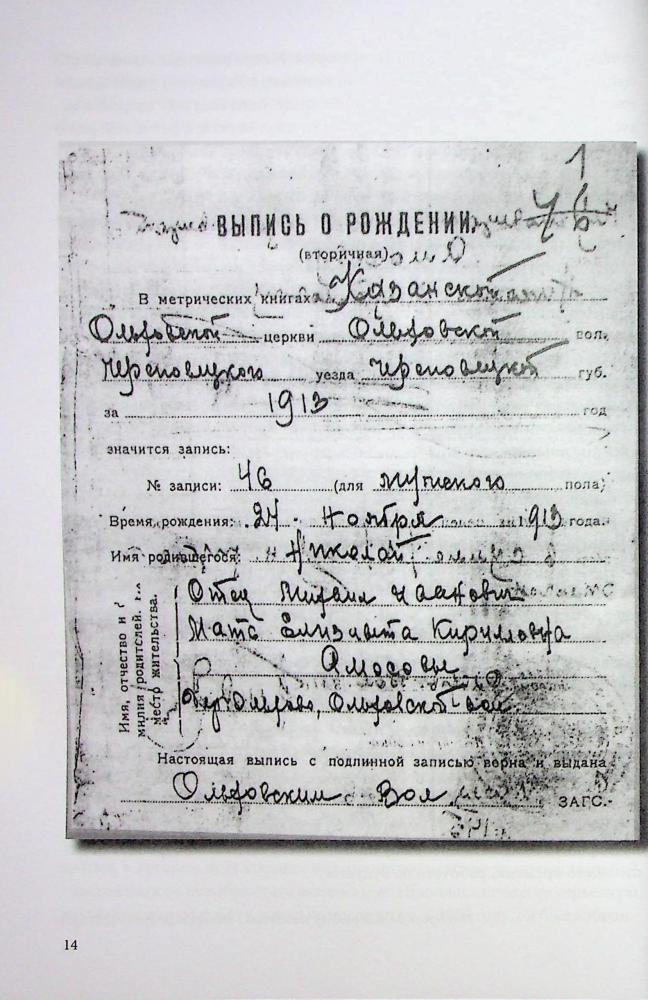 1
46
ВЫПИСЬ О РОЖДЕНИИ
(вторичная)
В метрических книгах Казанской
Ольховской церкви Ольховской вол.
Череповецкого уезда Череповецкой губ.
за 1913 год
значится запись:
№ записи: 46 (для мужского пола)
Время рождения: 24 ноября 1913 года.
Имя родившегося: Николай
Имя, отчество и
милия родителей.
место жительства.
Отец Михаил Иванович
Мать Елизавета Кирилловна
Амосовы
дер. Ольхово, Ольховской вол.
Настоящая выпись с подлинной записью верна и выдана
Ольховским Вол ЗАГС.-
14